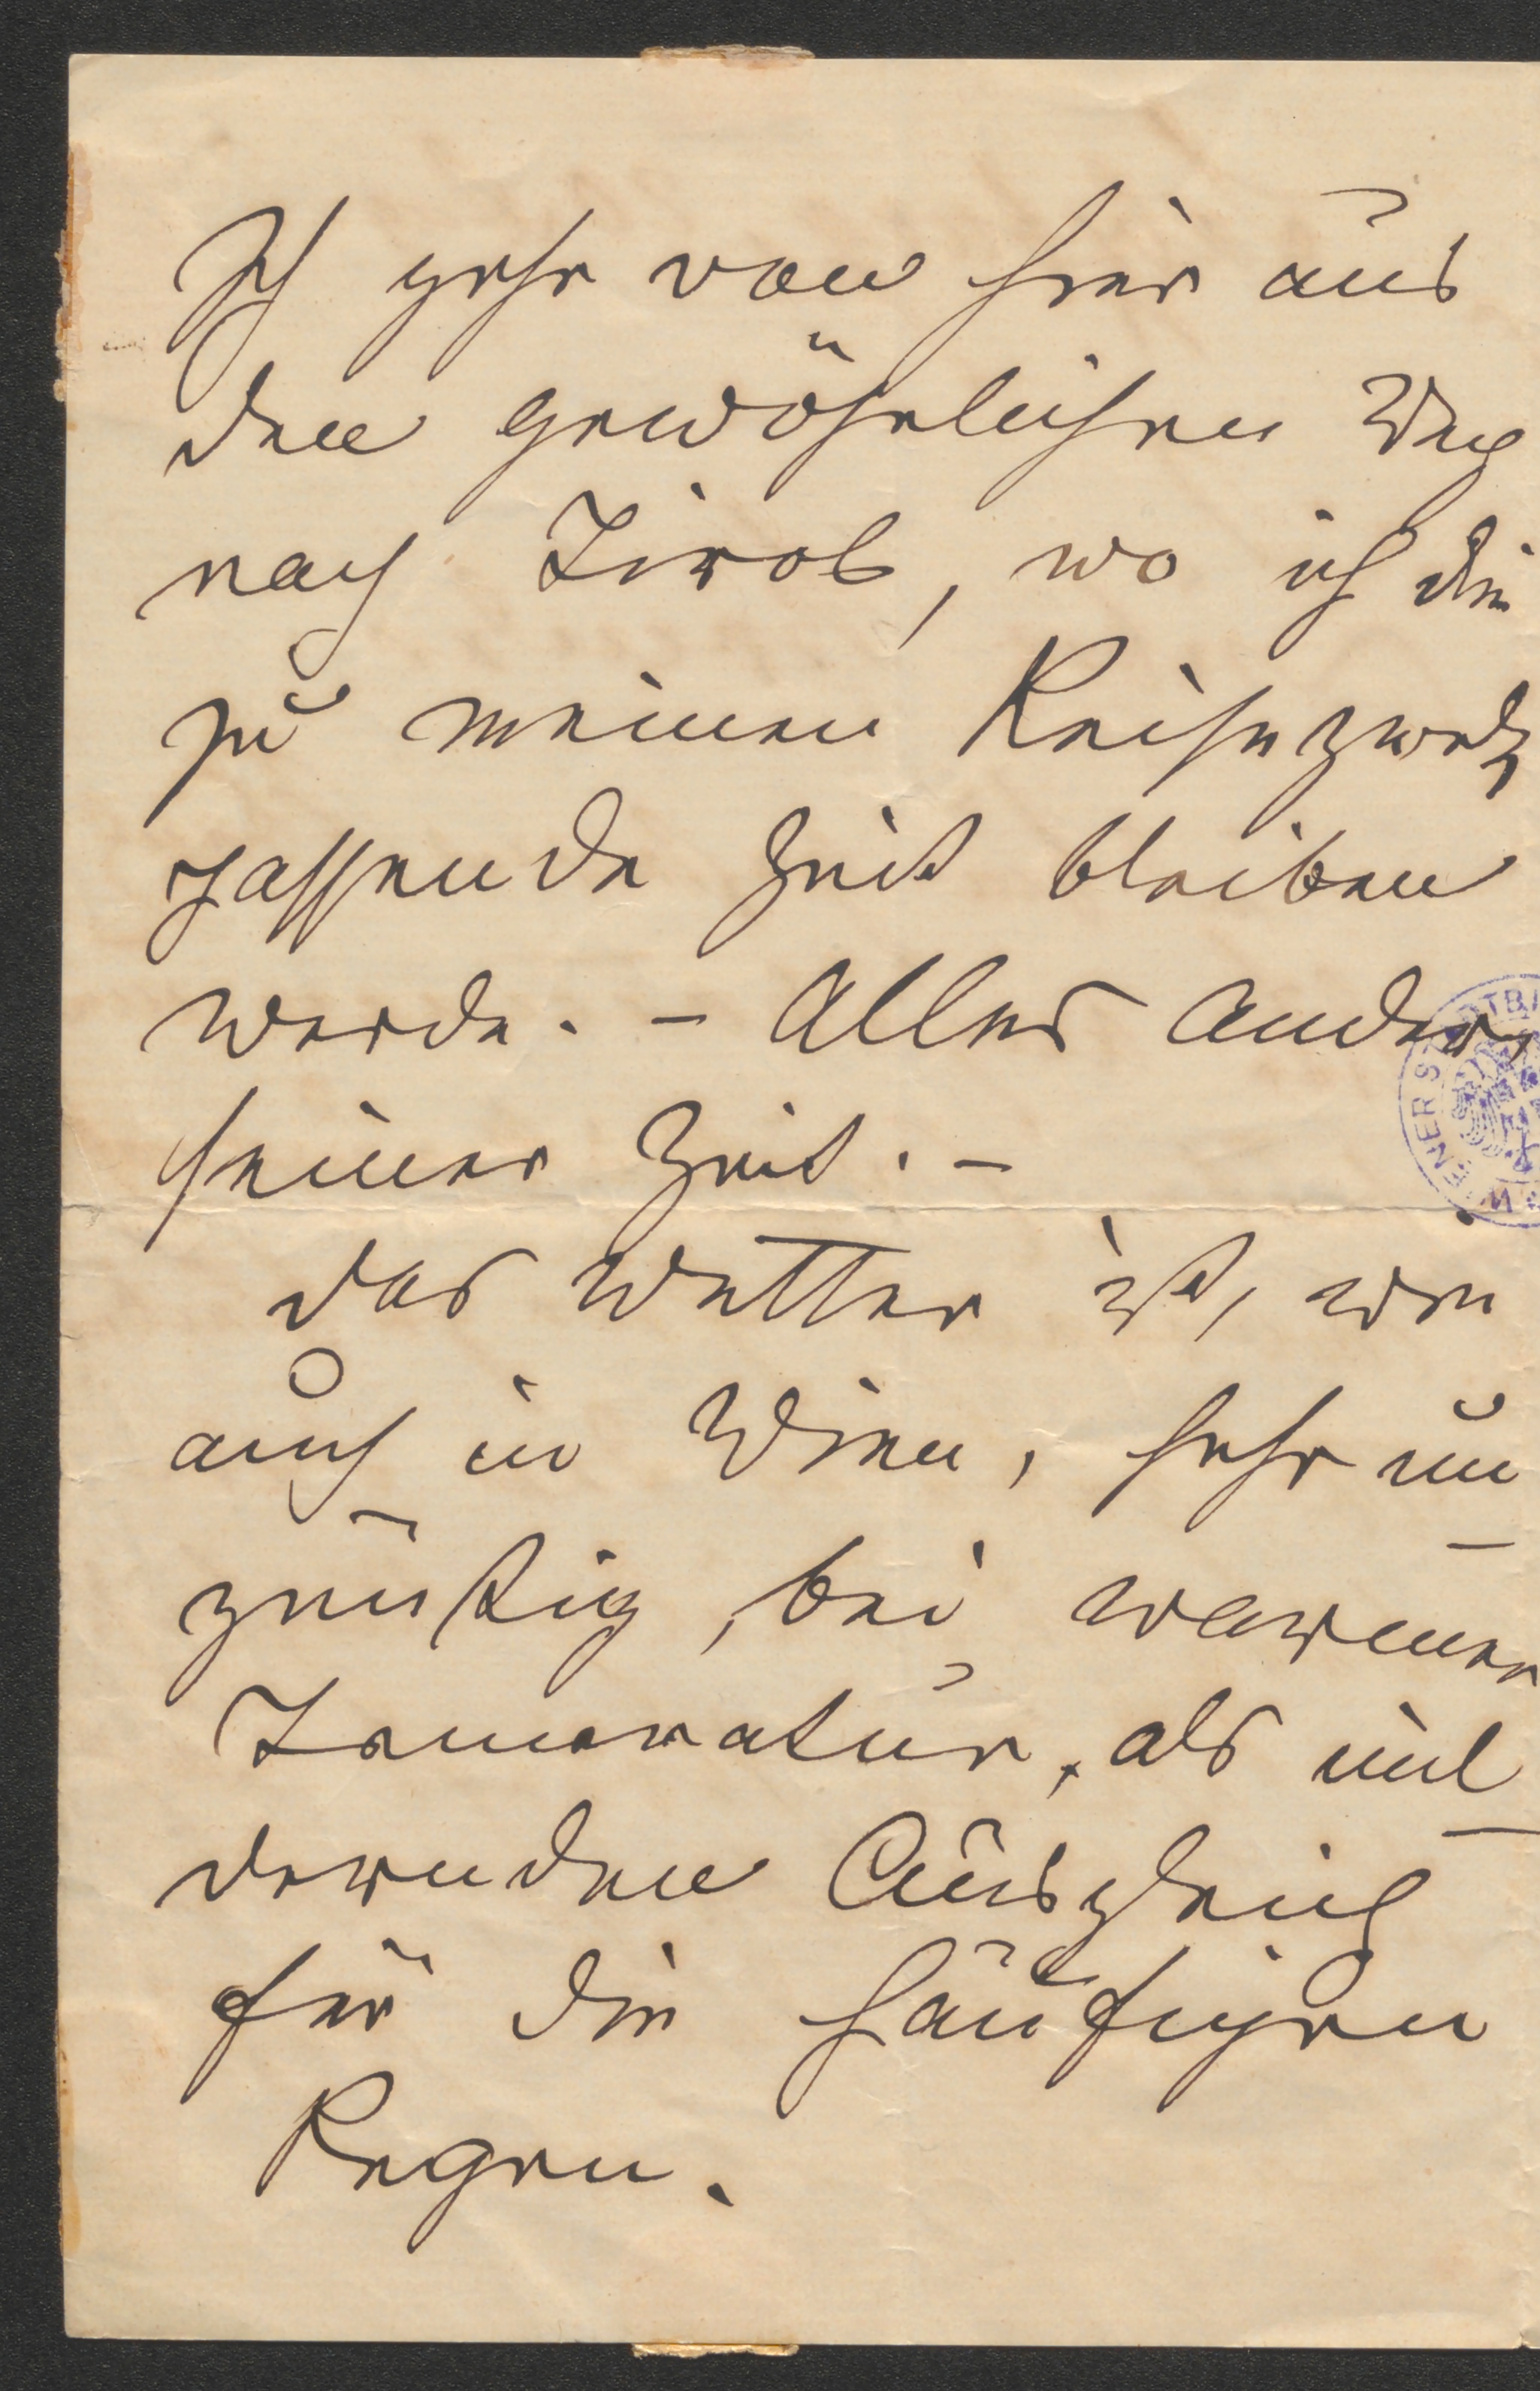 Ich gehe von hier aus
den gewöhnlichen Weg
nach Tirol, wo ich die
zu meinen Reisezweck
passende Zeit bleiben
werde. - Alles andere
seiner Zeit. -
Das Wetter ist, wie
auch in Wien, sehr un
günstig, bei warmer
Temeratur, als mil
dernden Ausgleich
für die häufigen
Regen.